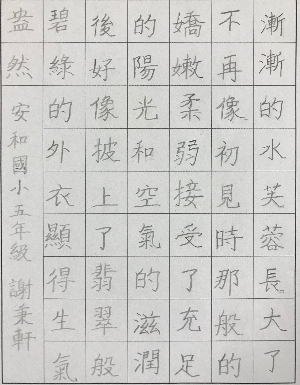 漸漸的水芙蓉長大了
不再像初見時那般的
嬌嫩柔弱接受了充足
的陽光和空氣的滋潤
後好像披上了翡翠般
碧綠的外衣顯得生氣
盎然
安和國小五年級 謝秉軒